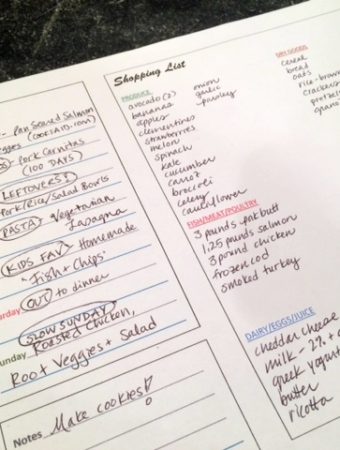 - Pan Seared Salmon
(COOKIEID.COM)
Pork Carnitas
(100 DAYS)
LEFTOVERS!
Pork/Rice/Salad Bowls
PASTA Vegetarian
Lasagna
KIDS FAV Homemade
"Fish + Chips"
OUT to dinner
SLOW SUNDAY
Roasted Chicken,
Root Veggies + Salad
Notes Make cookies!
Shopping List
PRODUCE
avocado (2)
bananas
apples
clementines
strawberries
melon
spinach
kale
cucumber
carrot
broccoli
celery
cauliflower
onion
garlic
parsley
FISH/MEAT/POULTRY
3 pounds pork butt
1.25 pounds salmon
3 pound chicken
frozen cod
smoked turkey
DRY GOODS
cereal
bread
oats
rice - brown
crackers
DAIRY/EGGS/JUICE
cheddar cheese
milk - 2% +
greek yogurt
butter
ricotta